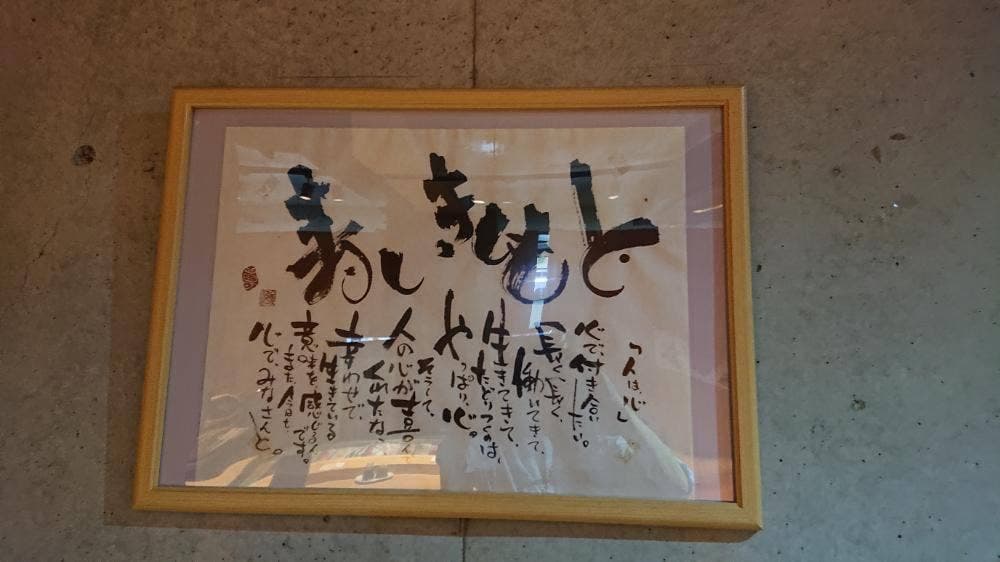 「人は心」
心で、付き合い
したい。
長く長く
働いてきて、
生きてきて、
たどりつくのは、
やっぱり、心。
そうして、
人の心が喜んで
くれたなら
幸わせで、
生きている
意味を感じるんです。
また今日も
心で、みなさんと。